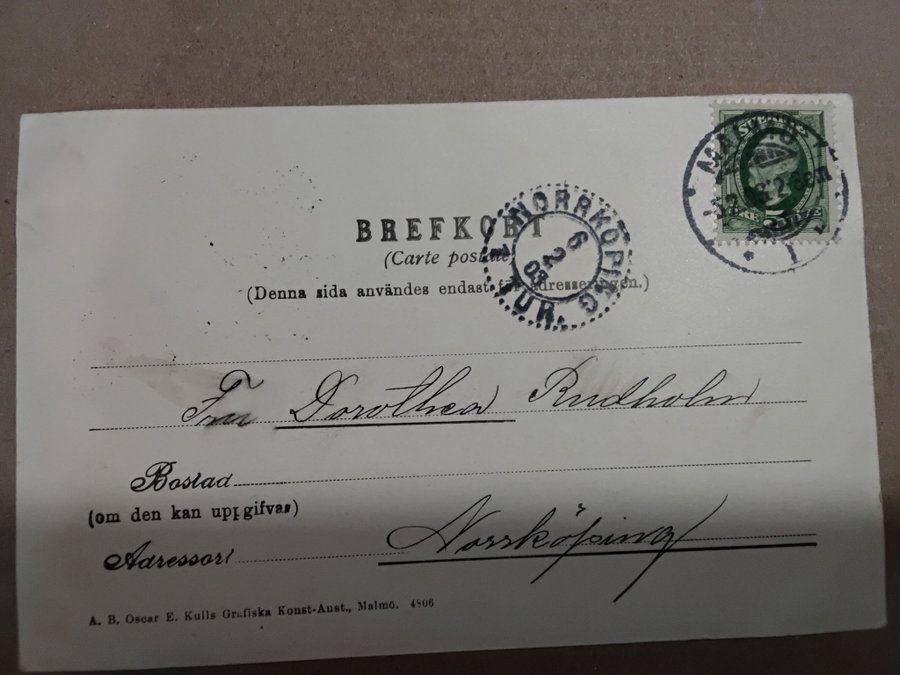 SVERIGE
MALMÖ
BREFKORT
NORRKÖPING
6
2
03
1 TUR.
(Carte postale)
(Denna sida användes endast för adresseringen.)
Fru Dorothea Rudholm
Bostad
(om den kan uppgifvas)
Adressort Norrköping
A. B. Oscar E. Kulls Grafiska Konst-Anst., Malmö. 4806